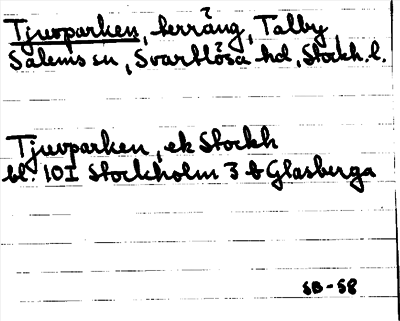 Tjuvparken, terräng, Talby
Salems sn, Svartlösa hd, Stockh. l.
Tjuvparken, ek Stockh
bl. 10I Stockholm 3 b Glasberga
SB-58